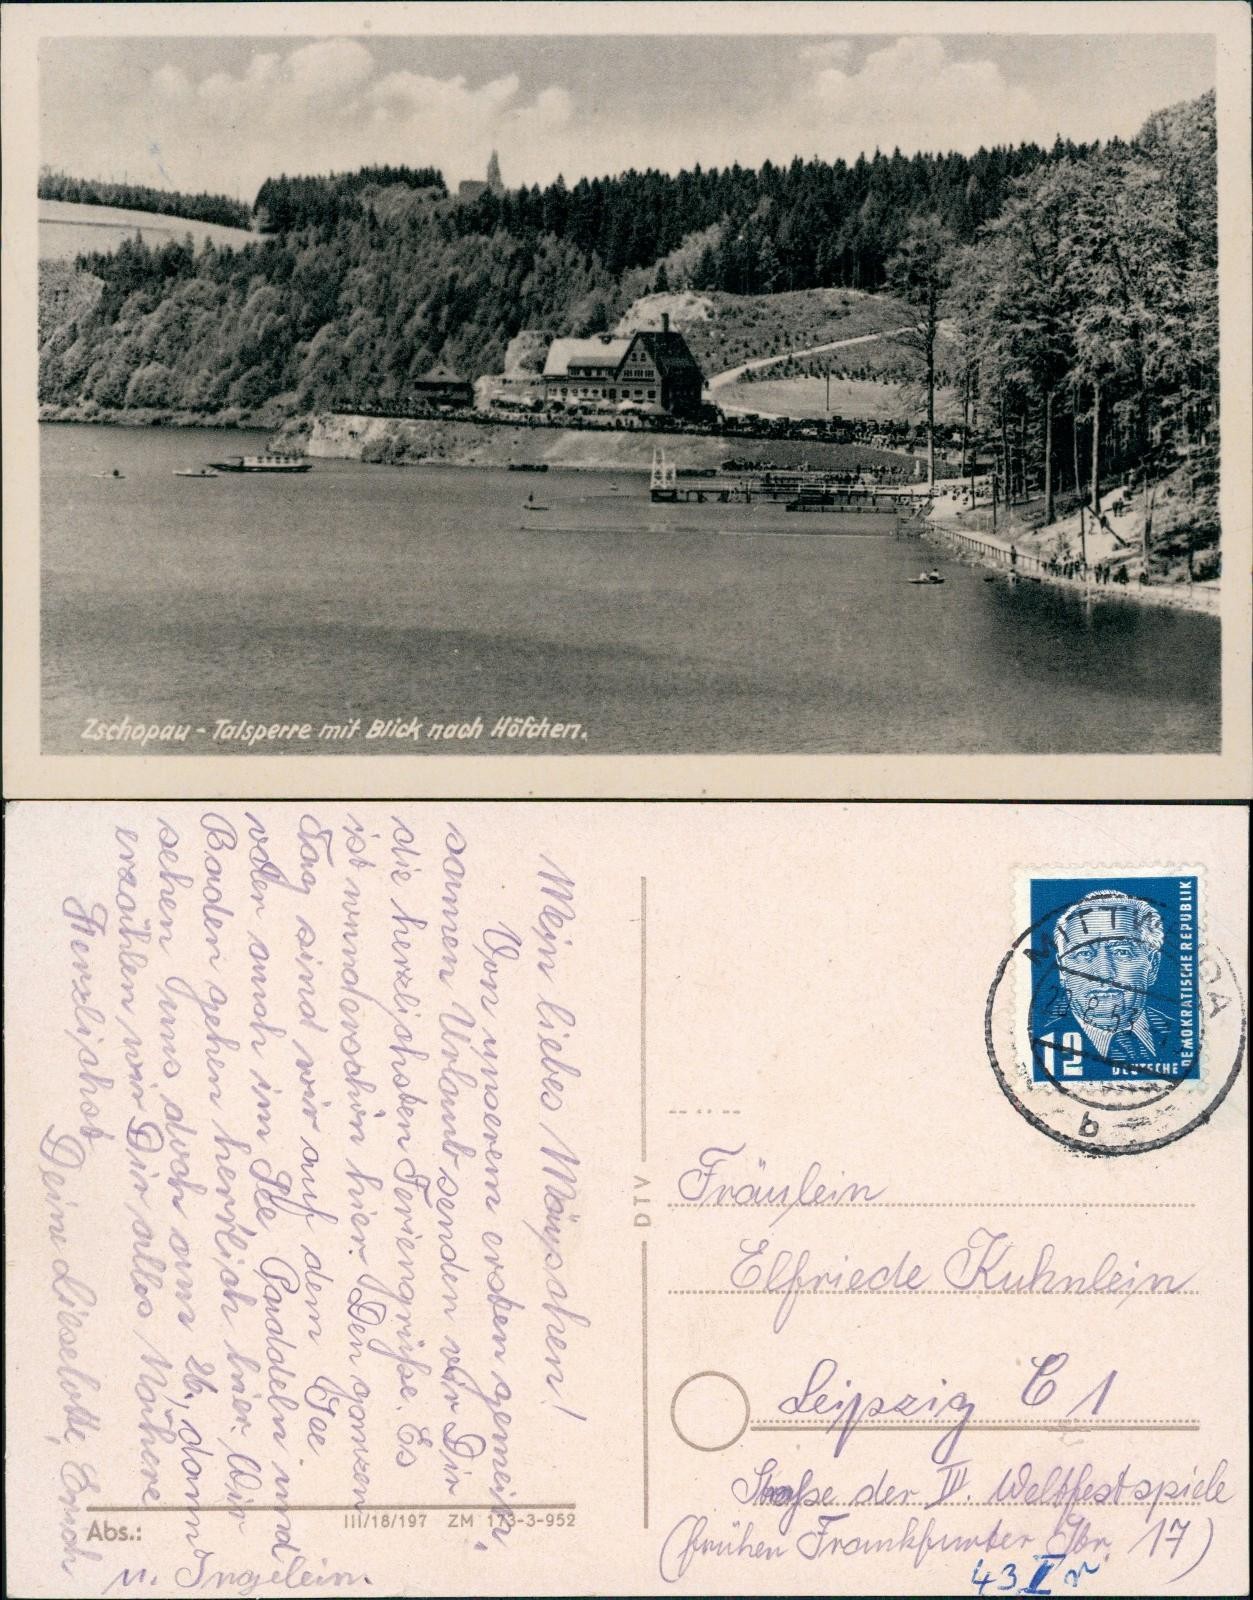 Zschopau - Talsperre mit Blick nach Höfchen.
Mein liebes Mäuschen!
Von unserem ersten gemein-
samen Urlaub senden wir Dir
die herzlichsten Feriengrüße. Es
ist wunderschön hier. Den ganzen
Tag sind wir auf dem See
oder auch im See. Paddeln und
Baden gehen herrlich hier. Wir
sehen uns doch am 26., dann
erzählen wir Dir alles Nähere
Herzlichst
Deine Lieselotte, Erich
u. Ingelein.
Abs.:
III/18/197 ZM 173-3-952
DTV
DEUTSCHE DEMOKRATISCHE REPUBLIK
12
MITTWEIDA
b
Fräulein
Elfriede Kuhnlein
Leipzig C 1
Straße der III. Weltfestspiele
(frühen Frankfurter Str. 17)
43 II r